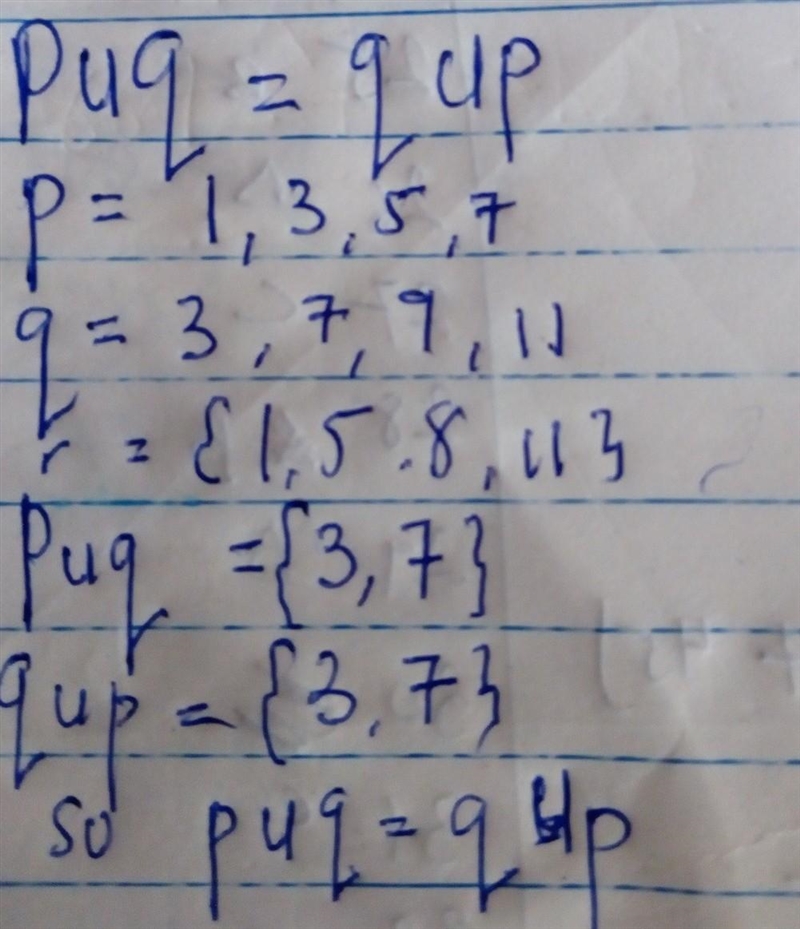 Puq = q up
p = 1, 3, 5, 7
q = 3, 7, 9, 11
r = {1, 5. 8, 11}
Puq = {3, 7}
qup = {3, 7}
so puq = q up